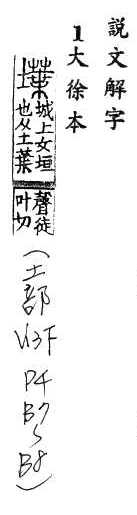 說文解字
1大徐本
堞城上女垣也从土葉聲徒叶切
(土部 U3F P4 B7 B8)